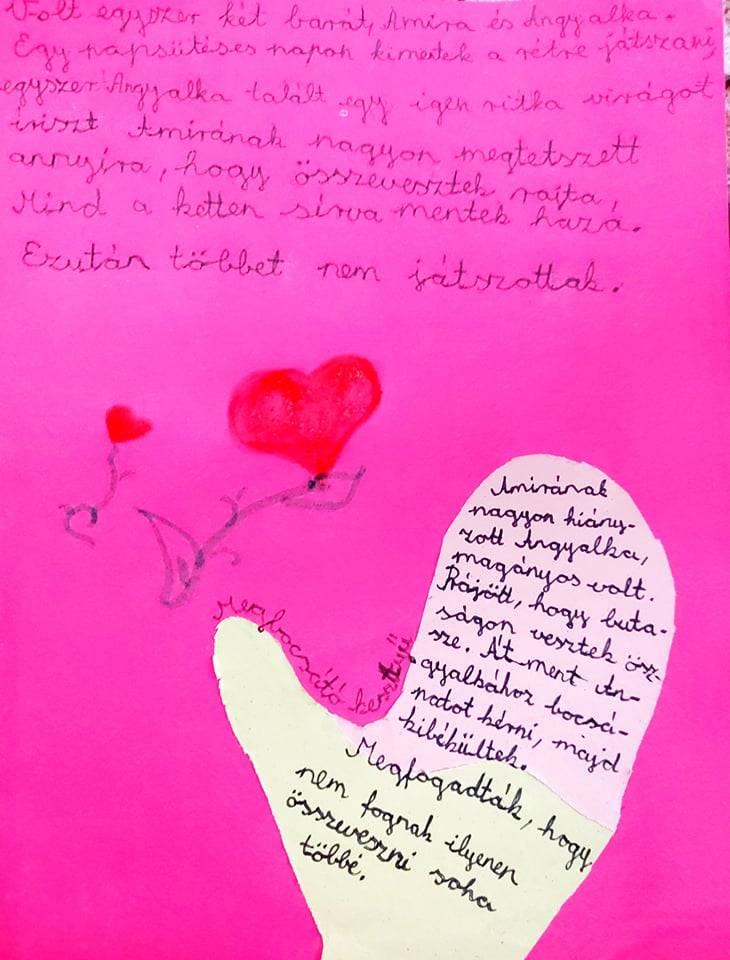 Volt egyszer két barát, Amira és Angyalka.
Egy napsütéses napon kimentek a rétre játszani,
egyszer Angyalka talált egy igen ritka virágot
íriszt Amirának nagyon megtetszett
annyira, hogy összevesztek rajta,
Mind a ketten sírva mentek haza.
Ezután többet nem játszottak.
Amirának
nagyon hiány-
zott Angyalka,
magányos volt.
Rájött, hogy buta-
ságon vesztek ösz-
sze. Át ment An-
gyalkához bocsá-
natot kérni, majd
kibékültek.
Megbocsátó kesztyű
Megfogadták, hogy
nem fognak ilyenen
összeveszni soha
többé.